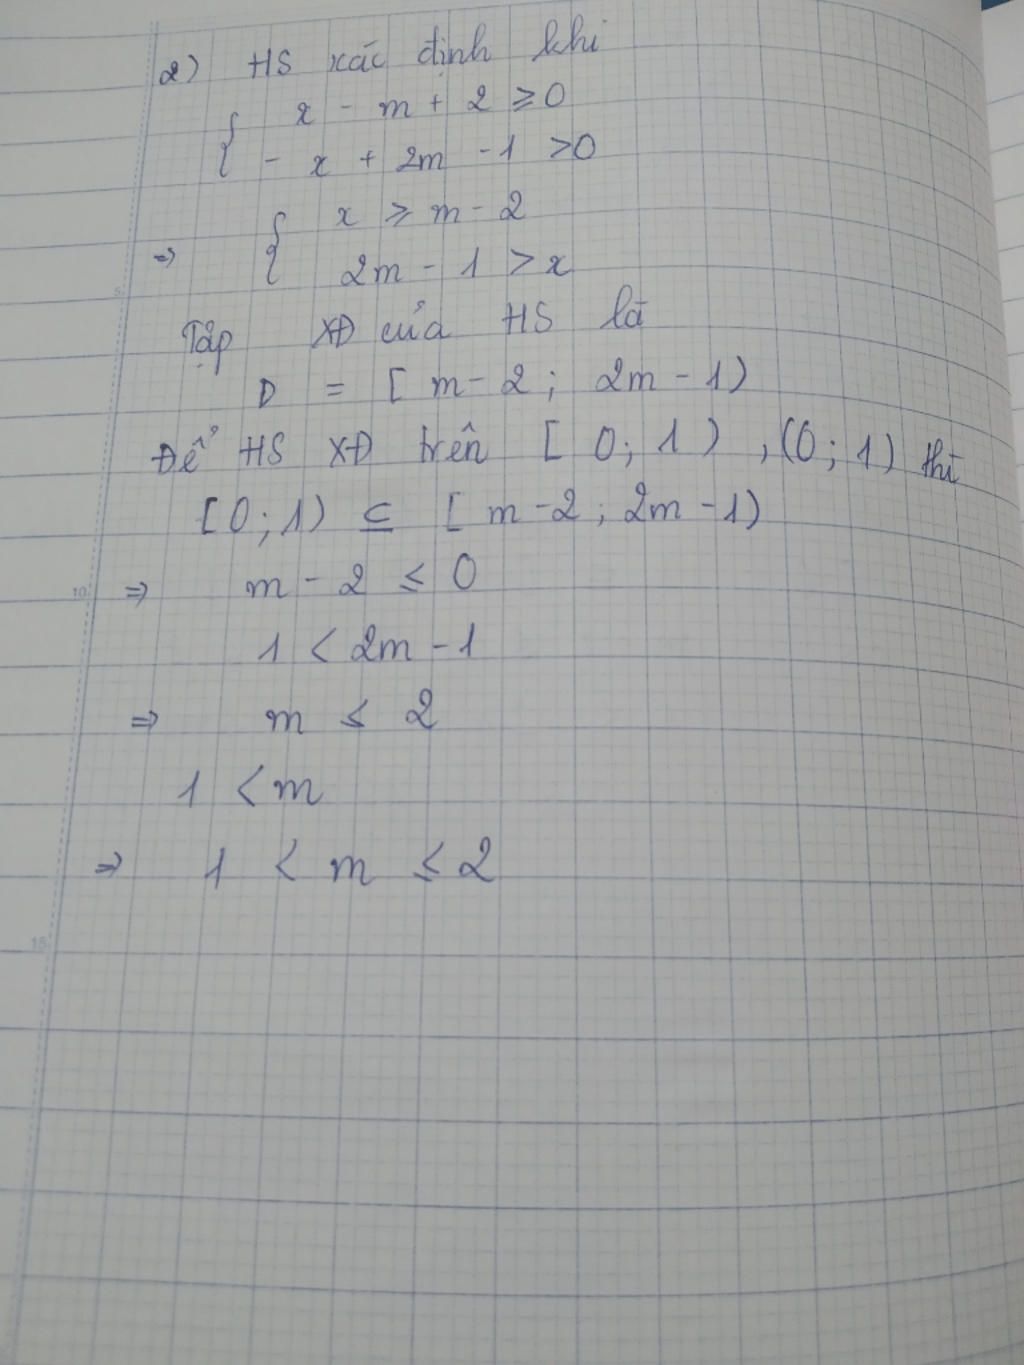 2) HS xác định khi
{ x - m + 2 ≥ 0
- x + 2m - 1 > 0
⇒ { x ≥ m - 2
2m - 1 > x
Tập XĐ của HS là
D = [ m - 2 ; 2m - 1 )
Để HS XĐ trên [ 0 ; 1 ) , (0 ; 1) thì
[ 0 ; 1) ⊆ [ m - 2 ; 2m - 1)
⇒ m - 2 ≤ 0
1 < 2m - 1
⇒ m ≤ 2
1 < m
⇒ 1 < m ≤ 2
5
10
15